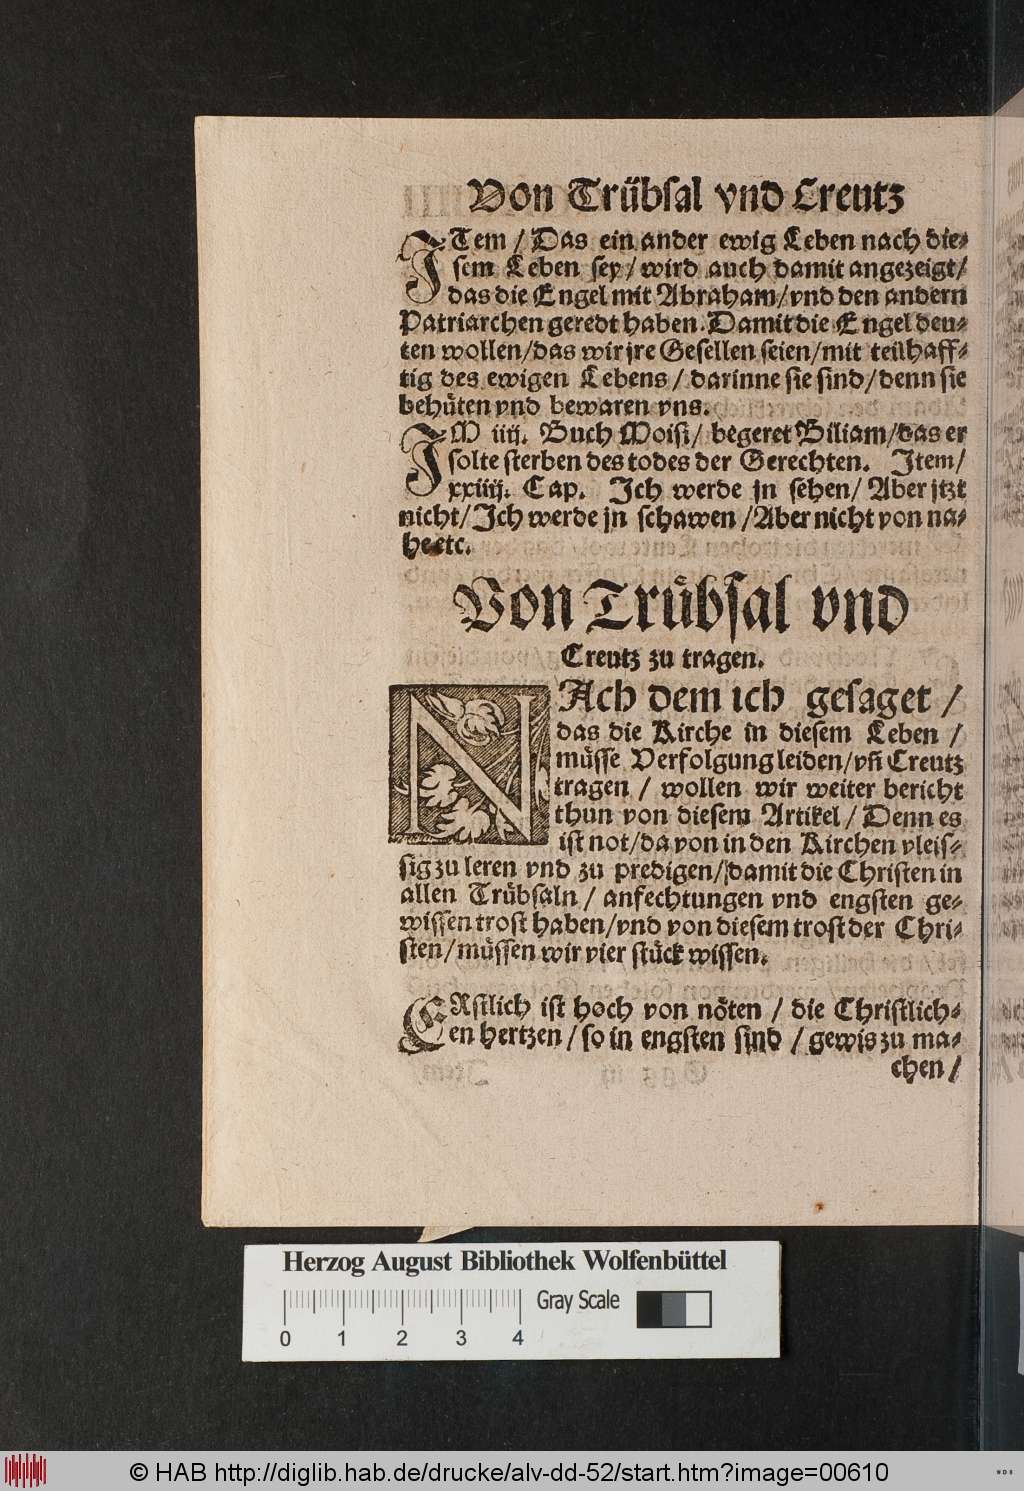 Von Trübſal vnd Creutz
ITem / Das ein ander ewig Leben nach die⸗
ſem Leben ſey / wird auch damit angezeigt /
das die Engel mit Abraham / vnd den andern
Patriarchen geredt haben. Damit die Engel deu⸗
ten wollen / das wir jre Geſellen ſeien / mit teilhaff⸗
tig des ewigen Lebens / darinne ſie ſind / denn ſie
behüten vnd bewaren vns.
IM iiij. Buch Moiſi / begeret Biliam / das er
ſolte ſterben des todes der Gerechten. Item /
xxiiij. Cap. Ich werde jn ſehen / Aber jtzt
nicht / Ich werde jn ſchawen / Aber nicht von na⸗
he etc.
Von Trübſal vnd
Creutz zu tragen.
NAch dem ich geſaget /
das die Kirche in dieſem Leben /
müſſe Verfolgung leiden / vñ Creutz
tragen / wollen wir weiter bericht
thun von dieſem Artikel / Denn es
iſt not / da von in den Kirchen vleiſ⸗
ſig zu leren vnd zu predigen / damit die Chriſten in
allen Trübſaln / anfechtungen vnd engſten ge⸗
wiſſen troſt haben / vnd von dieſem troſt der Chri⸗
ſten / müſſen wir vier ſtück wiſſen.
ERſtlich iſt hoch von nöten / die Chriſtlich⸗
en hertzen / ſo in engſten ſind / gewis zu ma⸗
chen /
Herzog August Bibliothek Wolfenbüttel
Gray Scale
0 1 2 3 4
© HAB http://diglib.hab.de/drucke/alv-dd-52/start.htm?image=00610
WDB